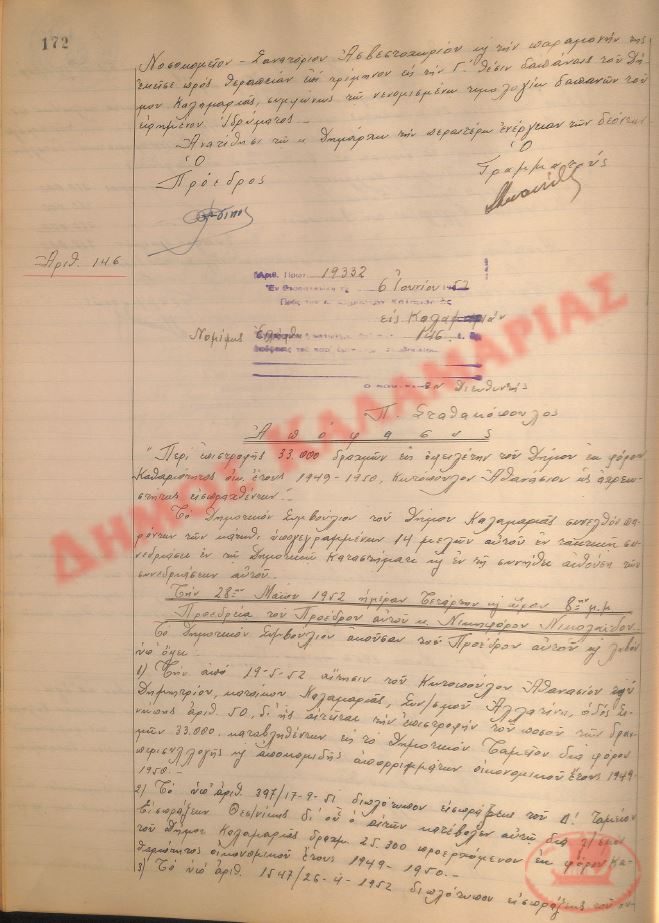 172
Νοσοκομεῖον - Σανατόριον Ἀσβεστοχωρίου κ τὴν παραμονήν της
ἐκεῖσε πρὸς θεραπείαν ἐπὶ τρίμηνον εἰς τὴν Γ. θέσιν δαπάναις τοῦ Δή-
μου Καλαμαριᾶς, συμφώνως τῷ νενομισμένῳ τιμολογίῳ δαπανῶν τοῦ
εἰρημένου Ἱδρύματος.
Ἀνατίθησι τῷ κ. Δημάρχῳ τὴν περαιτέρω ἐνέργειαν τῶν δεόντων
Ὁ Ὁ
Πρόεδρος Γραμματεύς
Ἀριθ. 146
Ἀριθ. Πρωτ. 19332
Ἐν Θεσσαλονίκῃ τῇ 6 Ἰουνίου 1952
Πρὸς τὸν κ. Δήμαρχον Καλαμαριᾶς
εἰς Καλαμαριάν
Νομίμως 146
Διευθυντής
Π. Σταθακόπουλος
Ἀπόφασις
"Περὶ ἐπιστροφῆς 33.000 δραχμῶν εἰς ὀφειλέτην τοῦ Δήμου ἐκ φόρου
Καθαριότητος οἰκ. ἔτους 1949-1950, Κητόπουλον Ἀθανάσιον ὡς ἀχρεω-
στήτως εἰσπραχθέντων".
Τὸ Δημοτικὸν Συμβούλιον τοῦ Δήμου Καλαμαριᾶς συνελθὸν πα-
ρόντων τῶν κάτωθι ὑπογεγραμμένων 14 μελῶν αὐτοῦ ἐν τακτικῇ συ-
νεδριάσει ἐν τῷ Δημοτικῷ Καταστήματι κ ἐν τῇ συνήθει αἰθούσῃ τῶν
συνεδριάσεων αὐτοῦ.
Τὴν 28ην Μαΐου 1952 ἡμέραν Τετάρτην κ ὥραν 8ην μ.μ.
Προεδρείᾳ τοῦ Προέδρου αὐτοῦ κ. Νικηφόρου Νικολαΐδου
Τὸ Δημοτικὸν Συμβούλιον ἀκοῦσαν τοῦ Προέδρου αὐτοῦ κ λαβὸν
ὑπ' ὄψει
1) Τὴν ἀπὸ 19-5-52 αἴτησιν τοῦ Κητοπούλου Ἀθανασίου τοῦ
Δημητρίου, κατοίκου Καλαμαριᾶς, Συν/σμοῦ Ἀλλατίνι, ὁδὸς
ἀριθ. 50, δι' ἧς αἰτεῖται τὴν ἐπιστροφὴν τοῦ ποσοῦ τῶν δραχ-
μῶν 33.000 καταβληθέντων εἰς τὸ Δημοτικὸν Ταμεῖον διὰ φόρον
περισυλλογῆς κ ἀποκομιδῆς ἀπορριμμάτων οἰκονομικοῦ ἔτους 1949-
1950.-
2) Τὸ ὑπ' ἀριθ. 397/17-9-51 διπλότυπον εἰσπράξεως τοῦ Δ' Ταμείου
Εἰσπράξεων Θεσ/νίκης δι' οὗ ὁ αἰτῶν κατέβαλεν αὐτῷ διὰ λ/σμὸν
τοῦ Δήμου Καλαμαριᾶς δραχμ. 25.300 προερχόμενον ἐκ φόρου Κα-
θαριότητος οἰκονομικοῦ ἔτους 1949-1950.-
3) Τὸ ὑπ' ἀριθ. 1547/26-4-1952 διπλότυπον εἰσπράξεως τοῦ
ΔΗΜΟΣ ΚΑΛΑΜΑΡΙΑΣ